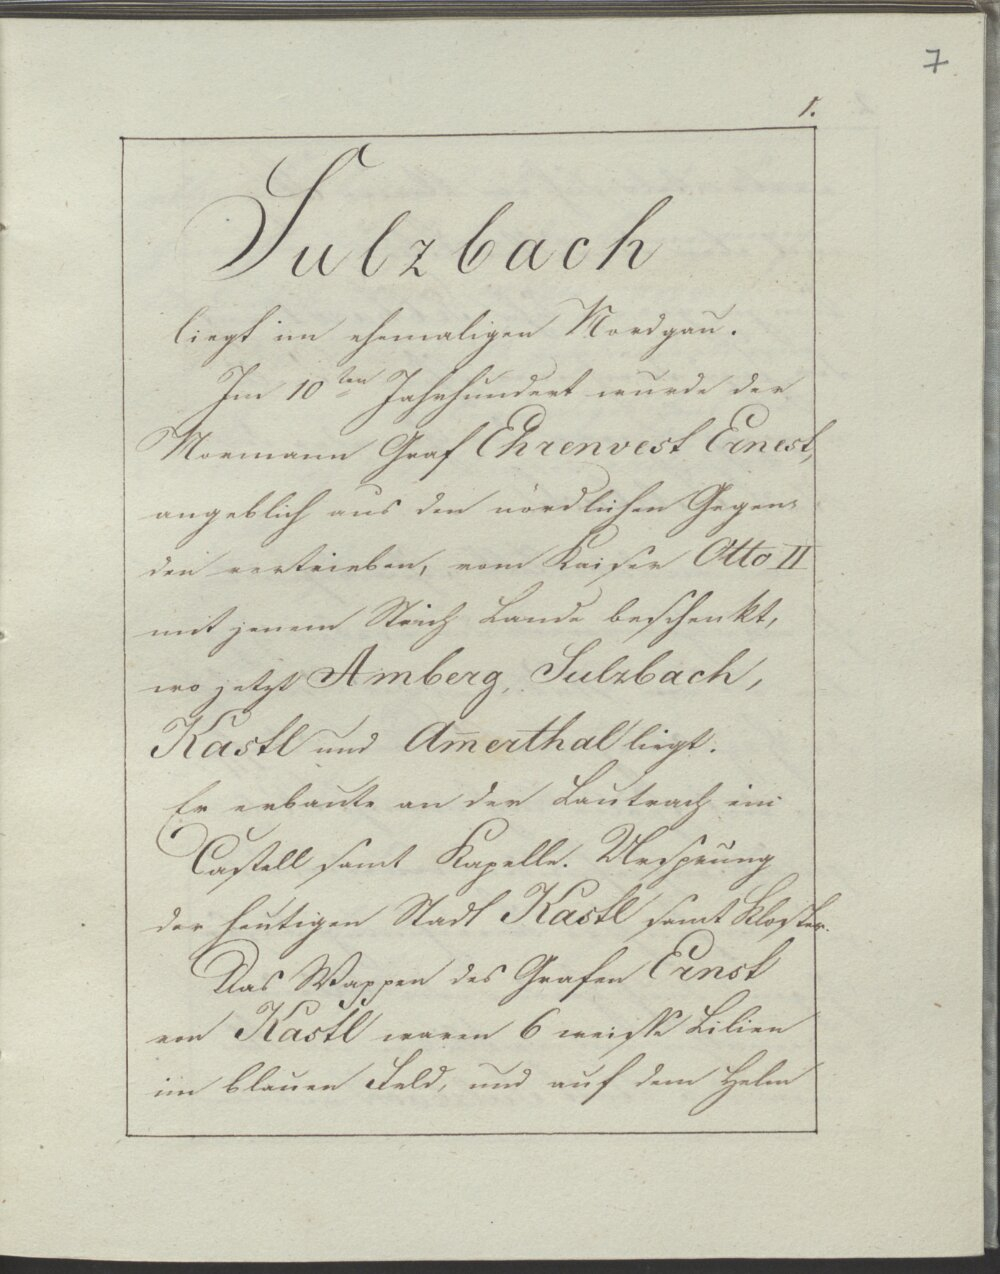 7
1.
Sulzbach
liegt im ehemaligen Nordgau.
Im 10ten Jahrhundert wurde der
Normann Graf Ehrenvest Ernest,
angeblich aus den nördlichen Gegen-
den vertrieben, vom Kaiser Otto II
mit jenem Strich Lande beschenkt,
wo jetzt Amberg, Sulzbach,
Kastl und Am̄erthal liegt.
Er erbaute an der Lautrach ein
Castell samt Kapelle. Ursprung
der heutigen Stadt Kastl samt Kloster.
Das Wappen des Grafen Ernst
von Kastl waren 6 weisse Lilien
im blauen Feld, und auf dem Helm